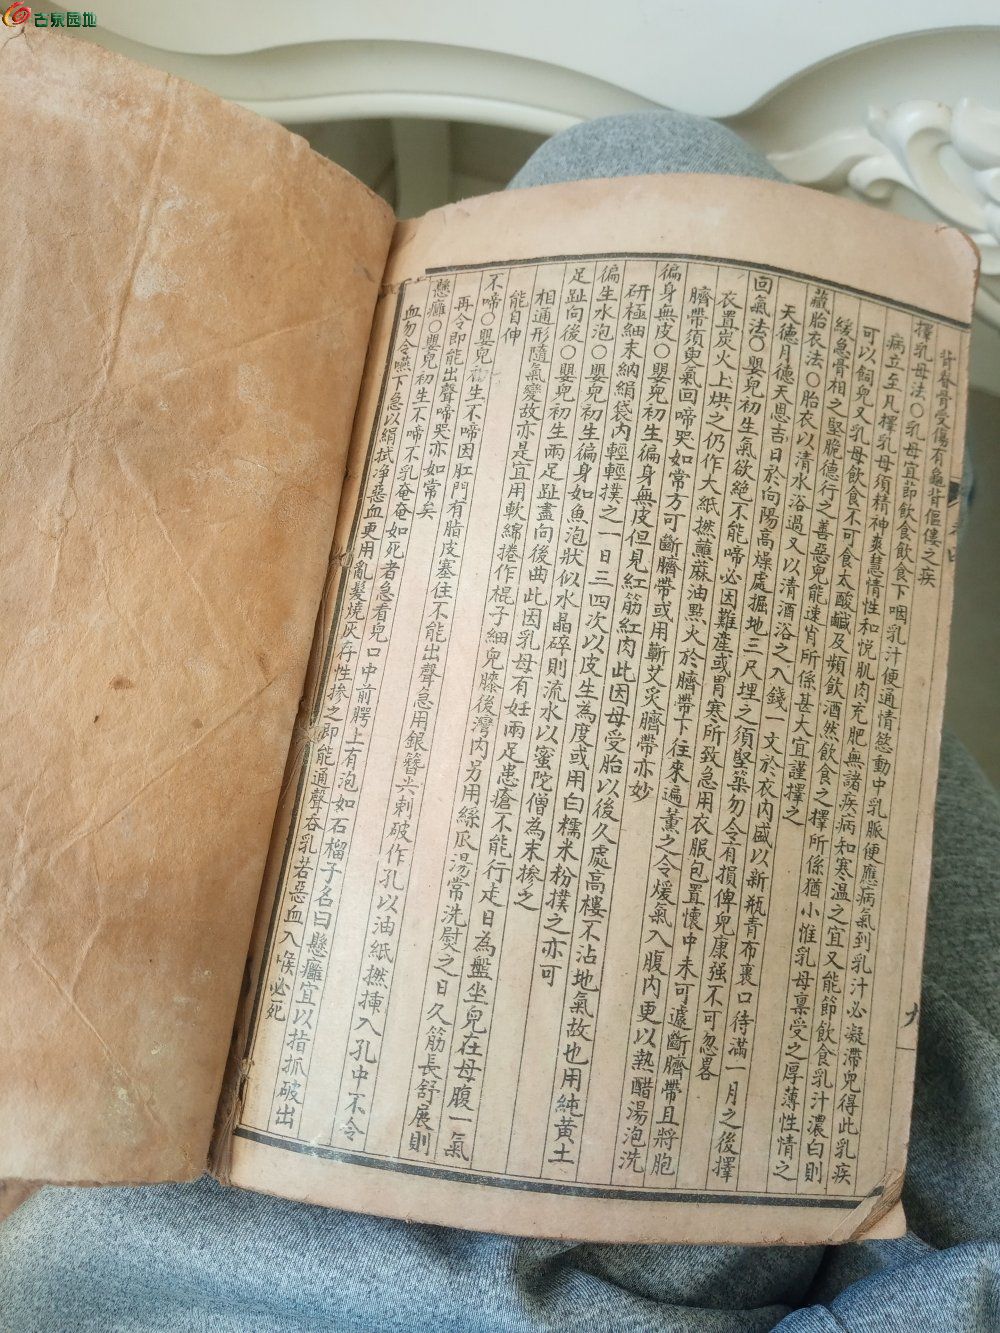 古泉园地
背脊骨受傷有龜背傴僂之疾
擇乳母法〇乳母宜節飲食飲食下咽乳汁便通情慾動中乳脈便應病氣到乳汁必凝滯兒得此乳疾
病立至凡擇乳母須精神爽慧情性和悅肌肉充肥無諸疾病知寒温之宜又能節飲食乳汁濃白則
可以飼兒又乳母飲食不可食太酸鹹及頻飲酒然飲食之擇所係猶小惟乳母稟受之厚薄性情之
緩急骨相之堅脆德行之善惡兒能速肖所係甚大宜謹擇之
藏胎衣法〇胎衣以清水浴過又以清酒浴之入錢一文於衣內盛以新瓶青布裹口待滿一月之後擇
天德月德天恩吉日於向陽高燥處掘地三尺埋之須堅築勿令有損俾兒康强不可忽畧
回氣法〇嬰兒初生氣欲絕不能啼必因難產或冒寒所致急用衣服包置懷中未可遽斷臍帶且將胞
衣置炭火上烘之仍作大紙撚蘸蔴油點火於臍帶下往來遍薰之令煖氣入腹內更以熱醋湯泡洗
臍帶須臾氣回啼哭如常方可斷臍帶或用蘄艾炙臍帶亦妙
徧身無皮〇嬰兒初生徧身無皮但見紅筋紅肉此因母受胎以後久處高樓不沾地氣故也用純黃土
研極細末納絹袋內輕輕撲之一日三四次以皮生為度或用白糯米粉撲之亦可
徧生水泡〇嬰兒初生徧身如魚泡狀似水晶碎則流水以蜜陀僧為末摻之
足趾向後〇嬰兒初生兩足趾盡向後曲此因乳母有妊兩足患瘡不能行走日為盤坐兒在母腹一氣
相通形隨氣變故亦是宜用軟綿捲作棍子細兒膝後灣內另用絲瓜湯常洗熨之日久筋長舒展則
能自伸
不啼〇嬰兒初生不啼因肛門有脂皮塞住不能出聲急用銀簪尖刺破作孔以油紙撚揷入孔中不令
再合即能出聲啼哭亦如常矣
懸癰〇嬰兒初生不啼不乳奄奄如死者急看兒口中前腭上有泡如石榴子名曰懸癰宜以指抓破出
血勿令嚥下急以絹拭净惡血更用亂髮燒灰存性摻之即能通聲吞乳若惡血入喉必死
九